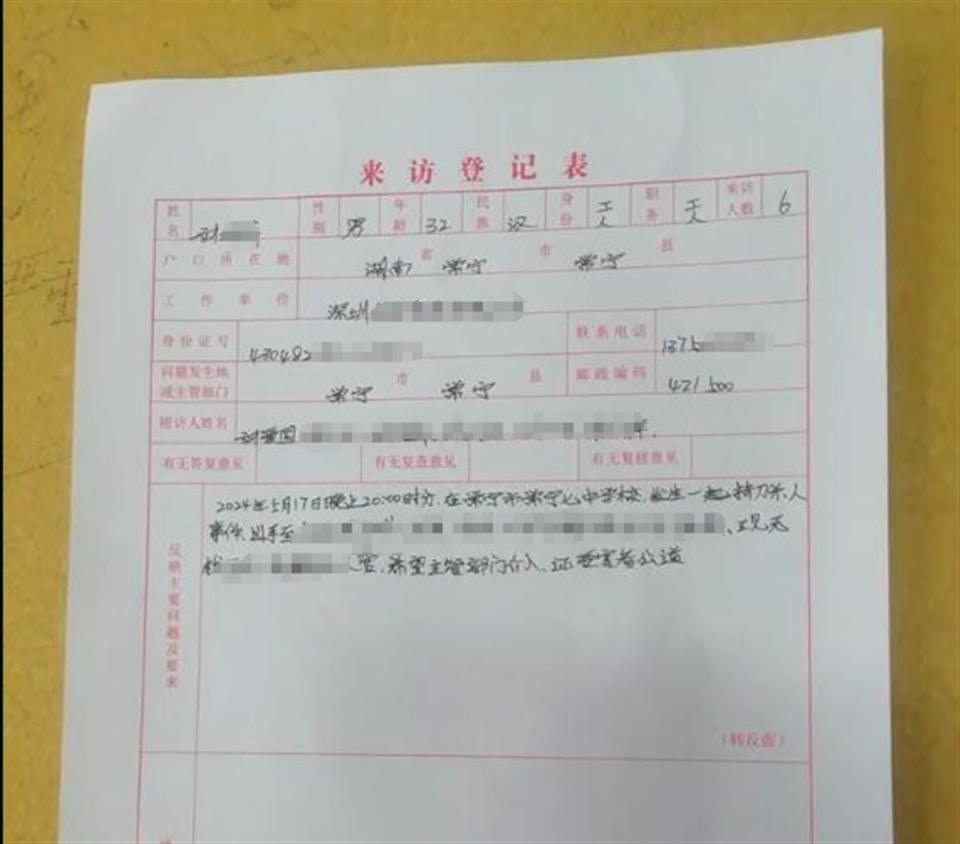 来访登记表
姓名 性别 男 年龄 32 民族 汉 身份 工人 职务 工人 来访人数 6
户口所在地 湖南 省 常宁 市 常宁 县
工作单位 深圳
身份证号 430482 联系电话 1375
问题发生地或主管部门 常宁 市 常宁 县 邮政编码 421500
陪访人姓名
有无答复意见 有无复查意见 有无复核意见
反映主要问题及要求
2024年5月17日晚上20:00时分,在常宁市常宁七中学校,发生一起持刀杀人
事件,凶手至
官,希望主管部门介入,还受害者公道
(转反面)